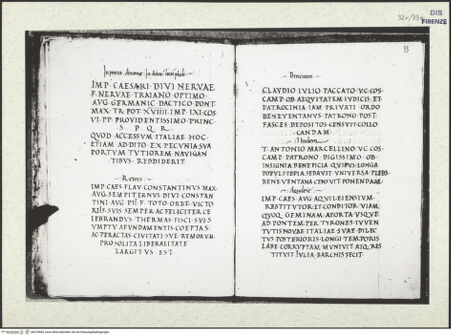 32v/33r
DIS
FIRENZE
IMP. CAESARI. DIVI NERVAE
F. NERVAE TRAIANO OPTIMO
AVG. GERMANIC. DACICO. PONT.
MAX. TR. POT. XVIIII. IMP. IXI. COS
VI. PP. PROVIDENTISSIMO PRINC.
S. P. Q. R.
QVOD ACCESSVM ITALIAE HOC
ETIAM ADDITO EX PECVNIA SVA
PORTVM TVTIOREM NAVIGAN
TIBVS REDDIDERIT
IMP. CAES. FLAV. CONSTANTINVS MAX.
AVG. SEMPITERNVS DIVI CONSTAN
TINI AVG. PII. F. TOTO ORBE VICTO
RIIS SVIS SEMPER AC FELICITER CE
LEBRANDVS THERMAS FISCI SVI S
VMPTV A FVNDAMENTIS COEPTAS
AC PERACTAS CIVITATI SVE REMORVM
PRO SOLITA LIBERALITATE
LARGITVS EST.
33
CLAVDIO IVLIO PACCATO. V. C. COS.
CAMP. OB AEQVITATEM IVDICIS. ET
PATROCINIA IAM PRIVATI ORDO
BENEVENTANVS PATRONO POST
FASCES DEPOSITOS CENSVIT COLLO
CANDAM.
T. ANTONIO MARCELLINO. V. C. COS.
CAMP. PATRONO DIGISSIMO OB
INSIGNIA BENEFICIA QVIBVS LONGA
POPVLI TEDIA SEDAVIT VNIVERSA PLEBS
BENEVENTANA CENSVIT PONENDAM
IMP. CAES. AVG. AQVILEIENSIVM
RESTITVTOR ET CONDITOR VIAM
QVOQ. GEMINAM. A PORTA VSQVE
AD PONTEM. PER TYRONES IVVEN
TVTIS NOVAE ITALIAE SVAE DILEC
TVS POSTERIORIS LONGI TEMPORIS
LABE CORRVPTAM MVNIVIT ATQ. RES
TITVIT